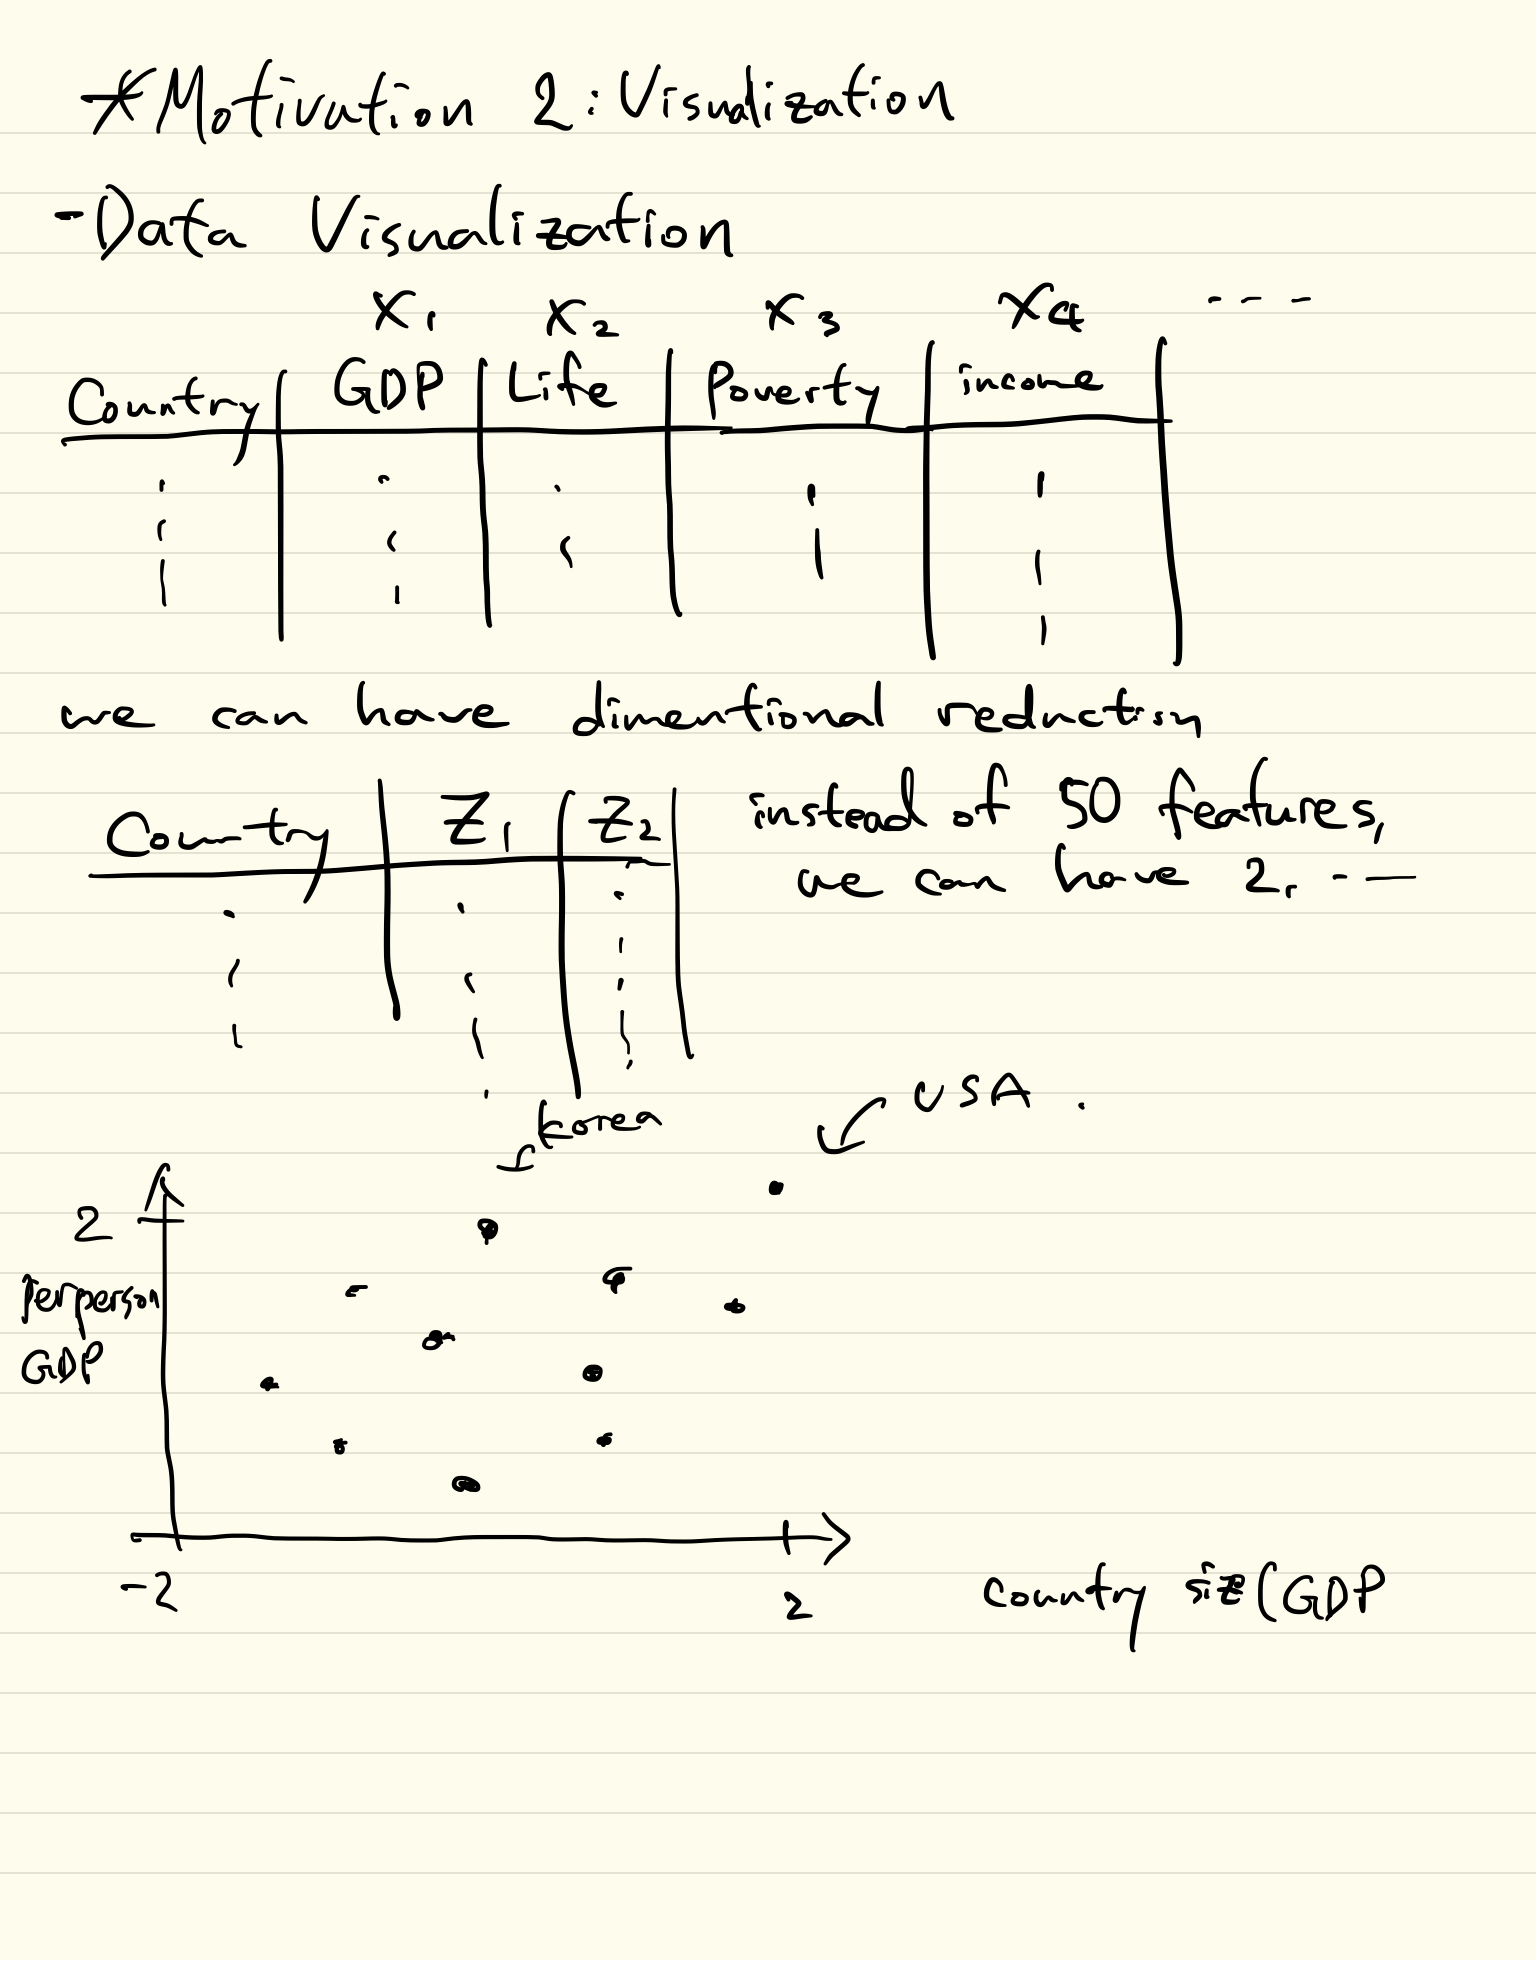 *Motivation 2: Visualization
-Data Visualization
x1 x2 x3 x4 ---
Country GDP Life Poverty income
we can have dimentional reduction
Country Z1 Z2
instead of 50 features,
we can have 2, ---
Korea
USA.
2
perperson
GDP
-2
2
country siz(GDP